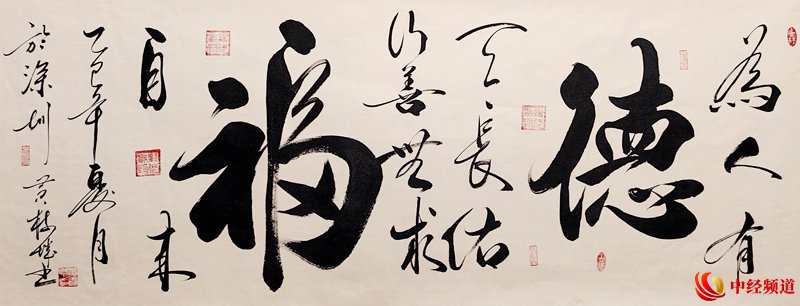 為人有
德
天長佑
行善無求
福
自来
乙巳年夏月
於深圳 黄
中经频道